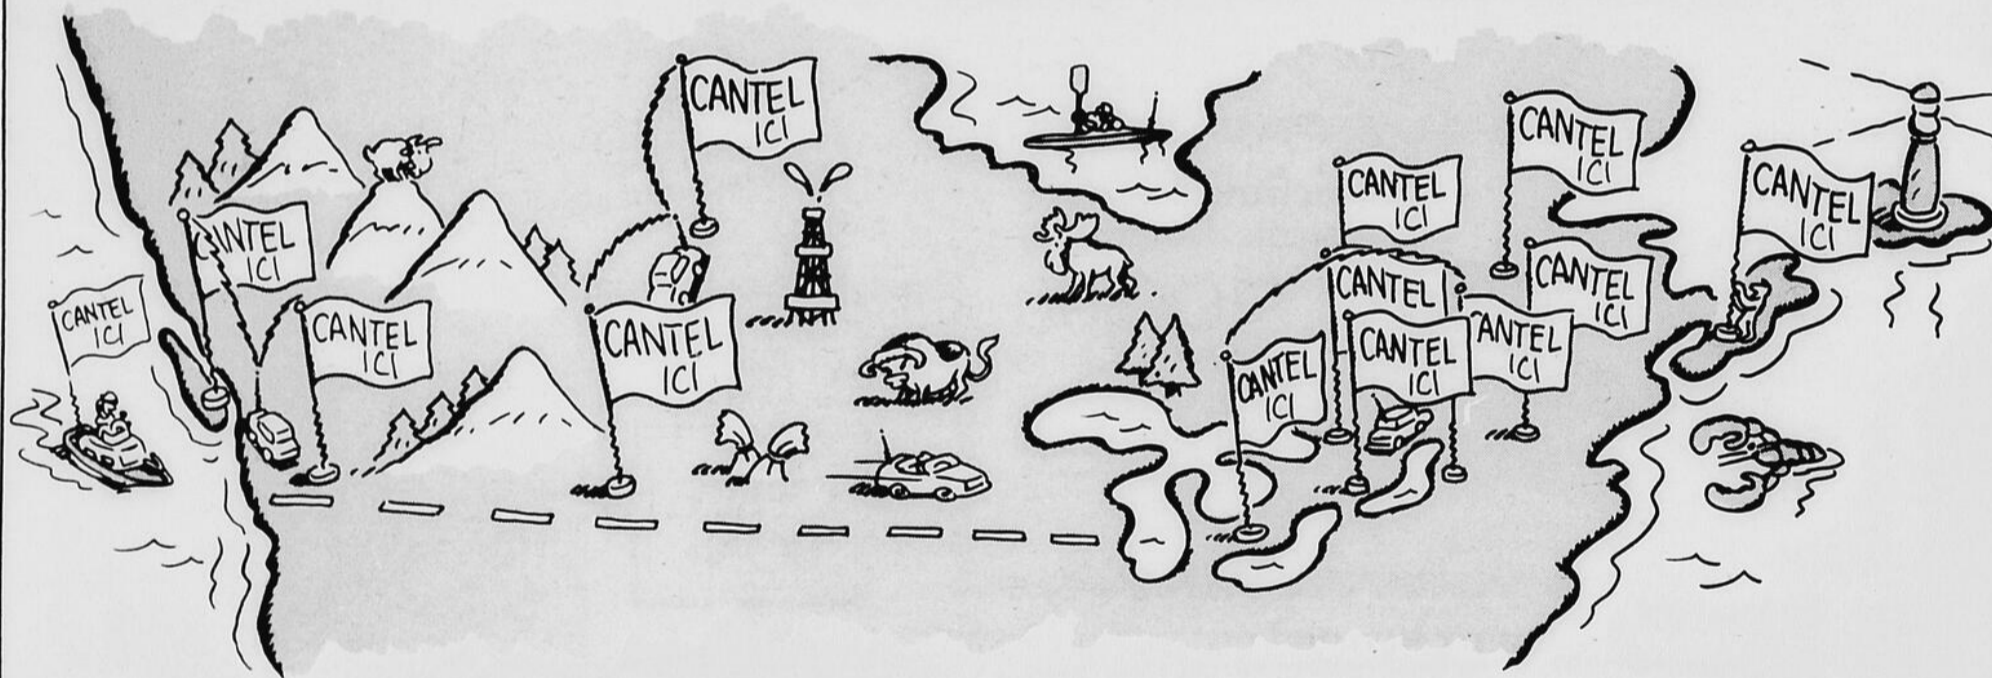 CANTEL
ICI
CANTEL
ICI
CANTEL
ICI
CANTEL
ICI
CANTEL
ICI
CANTEL
ICI
CANTEL
ICI
CANTEL
ICI
CANTEL
ICI
CANTEL
CANTEL
ICI
ANTEL
ICI
CANTEL
ICI